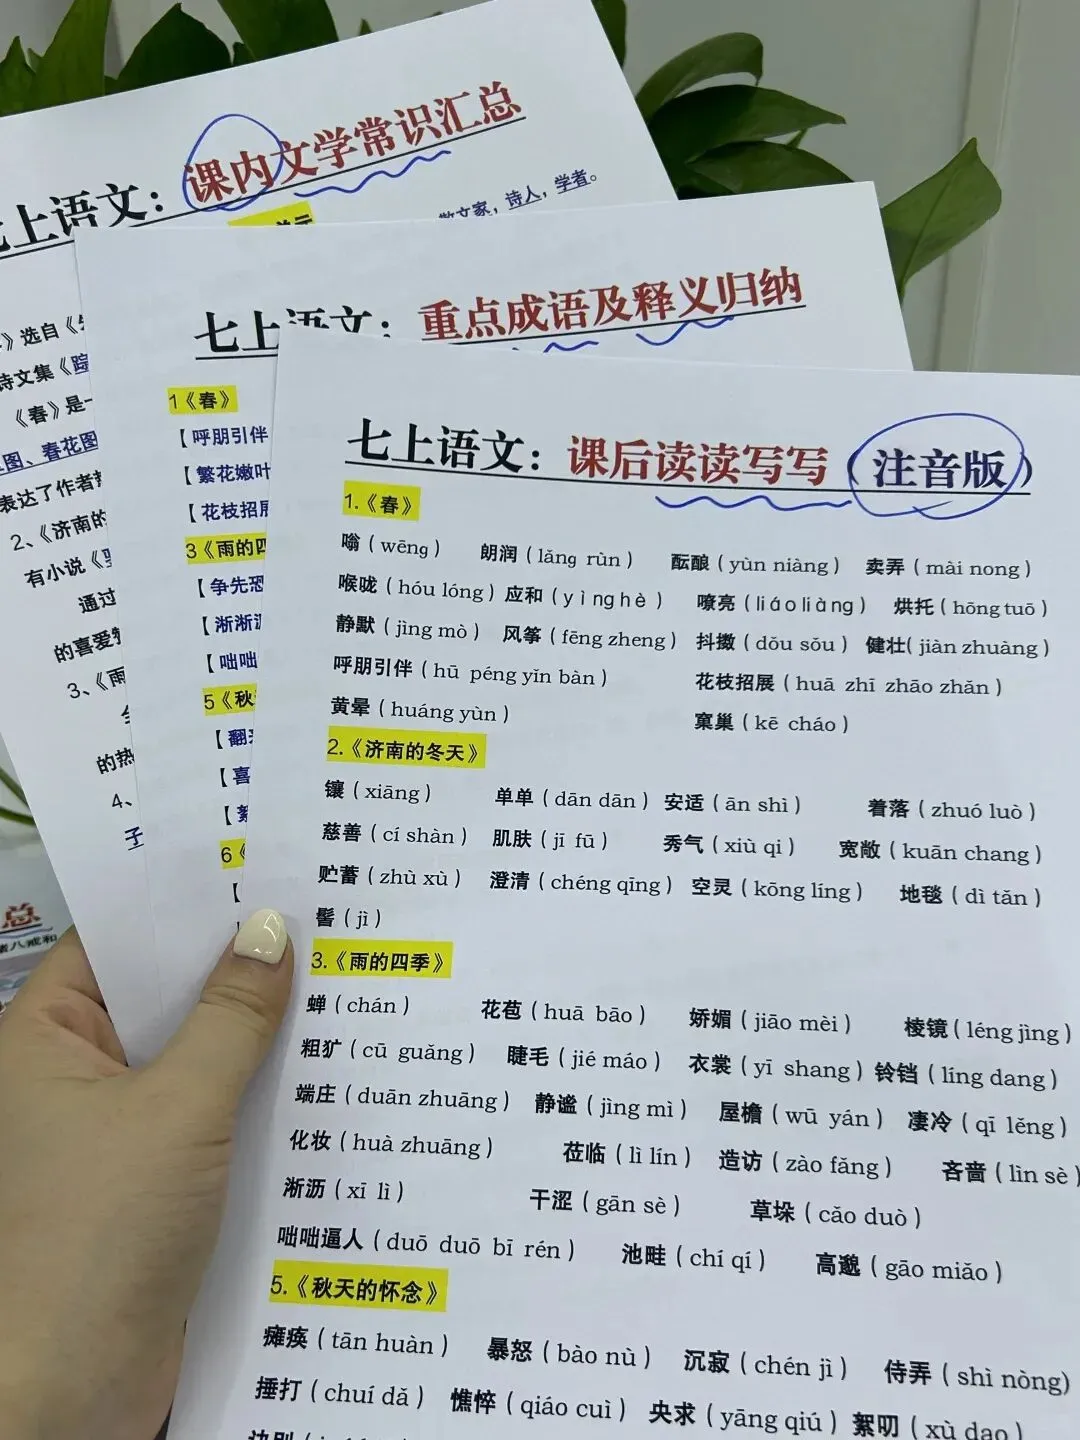 上语文：课内文学常识汇总
散文家，诗人，学者。
》选自《
诗文集《踪
《春》是一
图、春花图
表达了作者
2、《济南的
有小说《
通过
的喜爱
3、《雨
的热
4、
子
总
八戒和
七上语文：重点成语及释义归纳
1《春》
【呼朋引伴
【繁花嫩叶
【花枝招展
3《雨的四
【争先恐
【淅淅沥
【咄咄
5《秋
【翻
【喜
【絮
6《
【
七上语文：课后读读写写（注音版）
1.《春》
嗡（wēng） 朗润（lǎng rùn） 酝酿（yùn niàng） 卖弄（mài nong）
喉咙（hóu lóng）应和（yìnghè） 嘹亮（liáoliàng） 烘托（hōng tuō）
静默（jìng mò） 风筝（fēng zheng） 抖擞（dǒu sǒu） 健壮(jiàn zhuàng)
呼朋引伴（hū péng yǐn bàn） 花枝招展（huā zhī zhāo zhǎn）
黄晕（huáng yùn） 窠巢（kē cháo）
2.《济南的冬天》
镶（xiāng） 单单（dān dān） 安适（ān shì） 着落（zhuó luò）
慈善（cí shàn） 肌肤（jī fū） 秀气（xiù qi） 宽敞（kuān chang）
贮蓄（zhù xù） 澄清（chéng qīng） 空灵（kōng líng） 地毯（dì tǎn）
髻（jì）
3.《雨的四季》
蝉（chán） 花苞（huā bāo） 娇媚（jiāo mèi） 棱镜（léng jìng）
粗犷（cū guǎng） 睫毛（jié máo） 衣裳（yī shang）铃铛（líng dang）
端庄（duān zhuāng） 静谧（jìng mì） 屋檐（wū yán） 凄冷（qī lěng）
化妆（huà zhuāng） 莅临（lì lín） 造访（zào fǎng） 吝啬（lìn sè）
淅沥（xī lì） 干涩（gān sè） 草垛（cǎo duò）
咄咄逼人（duō duō bī rén） 池畦（chí qí） 高邈（gāo miǎo）
5.《秋天的怀念》
瘫痪（tān huàn） 暴怒（bào nù） 沉寂（chén jì） 侍弄（shì nòng）
捶打（chuí dǎ） 憔悴（qiáo cuì） 央求（yāng qiú）絮叨（xù dao）
诀别（